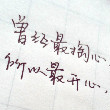 曾经最掏心
所以最开心